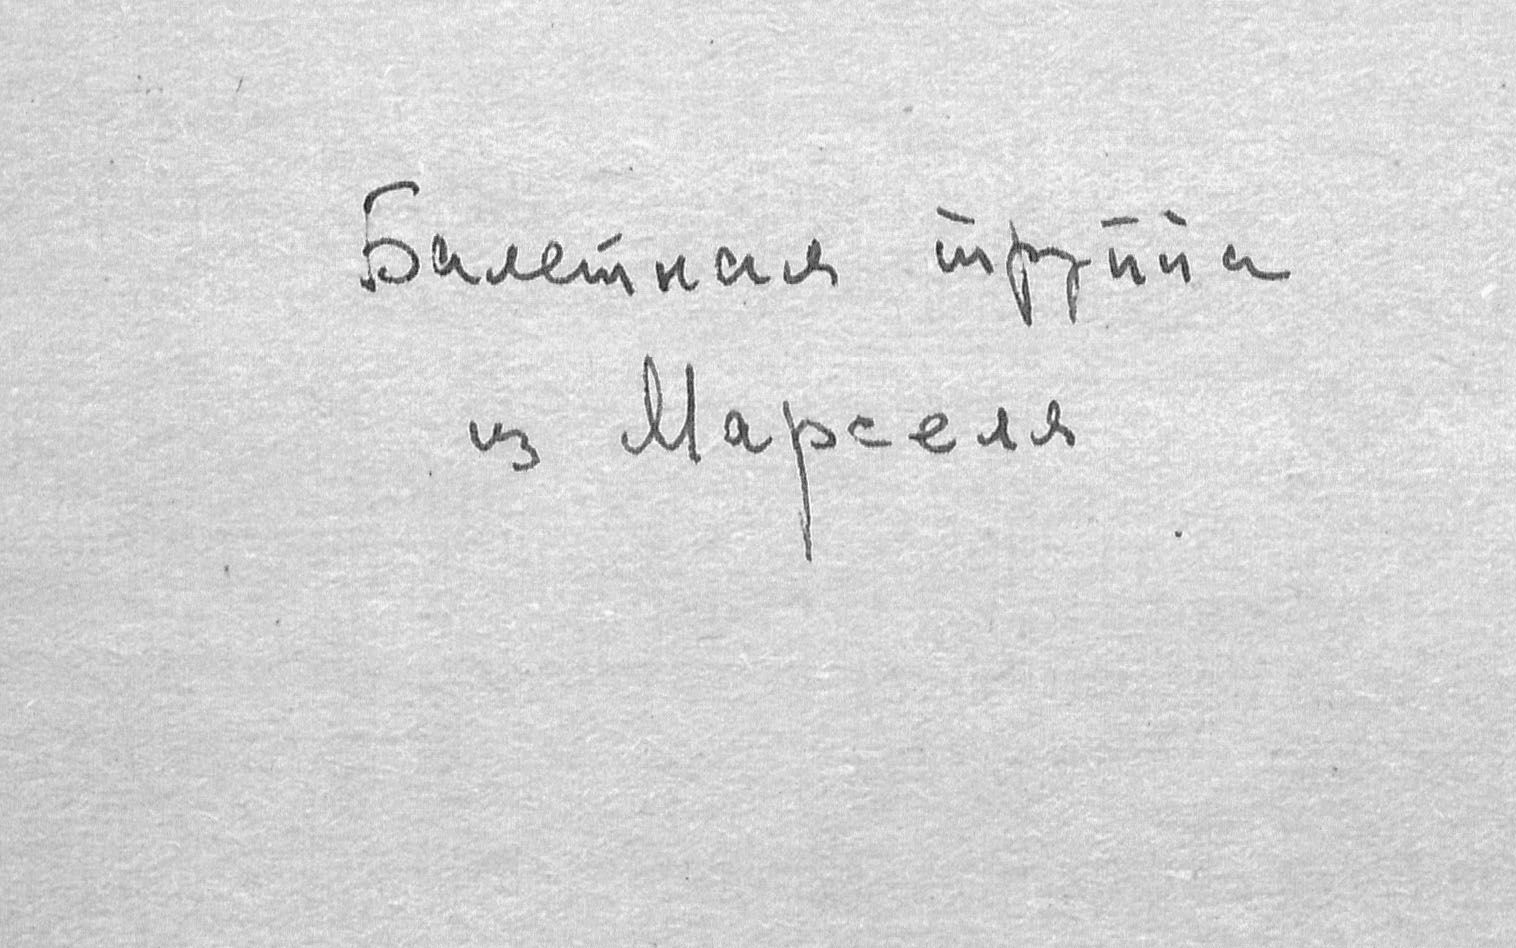 Балетная труппа
из Марселя